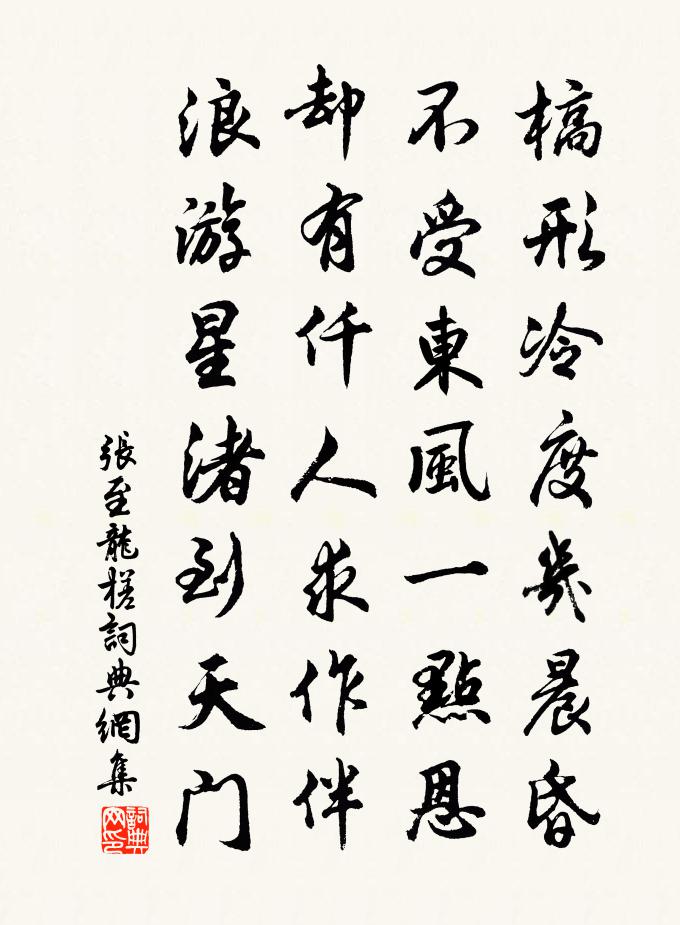 槁形冷度幾晨昏
不受東風一點恩
却有仟人求作伴
浪游星渚到天門
張至龍槎詞典網集
詞典网印